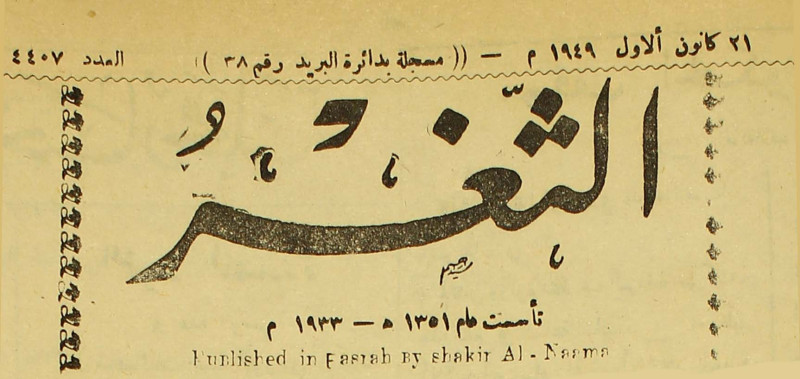 ٢١ كانون ألاول ١٩٤٩ م — (( مسجلة بدائرة البريد رقم ٣٨ )) العدد ٤٤٠٧
الثَّغْرُ
تأسست عام ١٣٥١ ه — ١٩٣٣ م
Published in Basrah By shakir Al - Naama